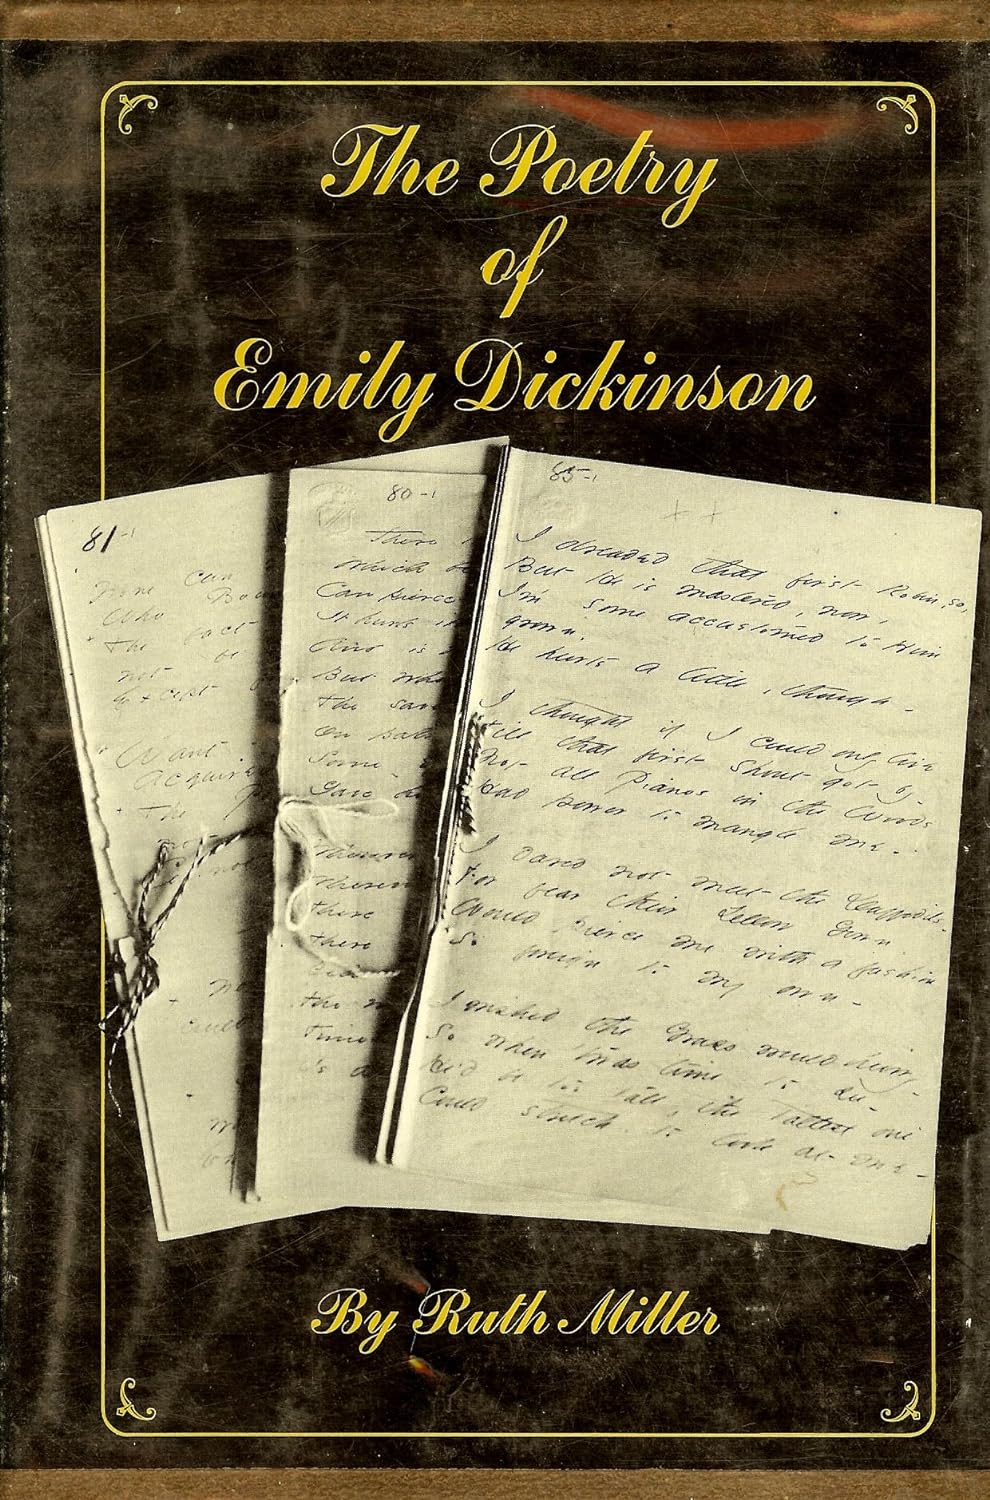 The Poetry
of
Emily Dickinson
81-1
None can
Who
The fact
not
Except
Want -
acquire
The
80-1
There
Which
Can pierce
It hurts
But
the
On
Some
Gave
there
there
the
85-1
+ +
I dreaded that first Robin, so,
But He is mastered, now,
I'm some accustomed to Him
grown,
He hurts a little, though -
I thought if I could only live
Till that first Shout got by -
Not all Pianos in the Woods
Had power to mangle me -
I dared not meet the Daffodils -
For fear their Yellow Gown
Would pierce me with a fashion
So foreign to my own -
I wished the Grass would hurry -
So when 'twas time to see -
He'd be too tall, the tallest one
Could stretch to look at me -
By Ruth Miller